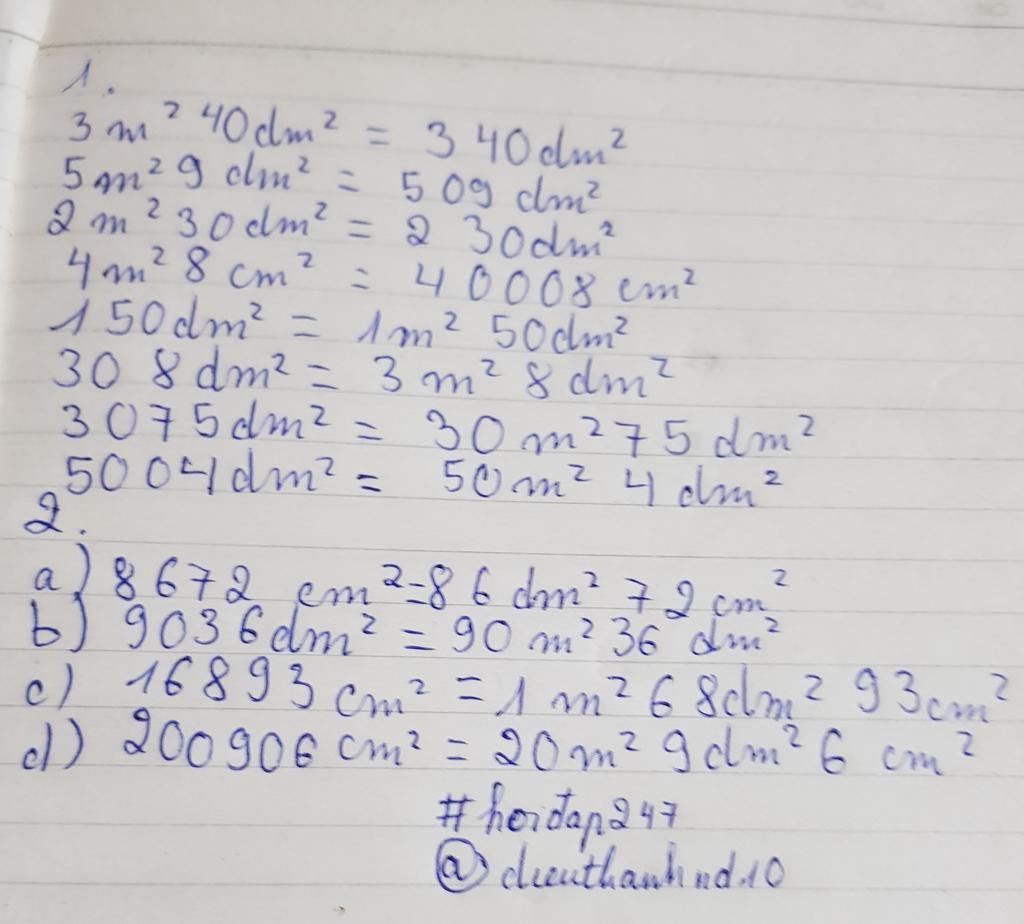 1.
3m² 40dm² = 340dm²
5m² 9 dm² = 509 dm²
2m² 30dm² = 230dm²
4m² 8 cm² = 40008 cm²
150dm² = 1m² 50dm²
308dm² = 3m² 8dm²
3075dm² = 30m² 75 dm²
5004dm² = 50m² 4 dm²
2.
a) 8672 cm² = 86 dm² 72 cm²
b) 9036dm² = 90 m² 36 dm²
c) 16893 cm² = 1 m² 68dm² 93cm²
d) 200906 cm² = 20m² 9dm² 6 cm²
#hoidap247